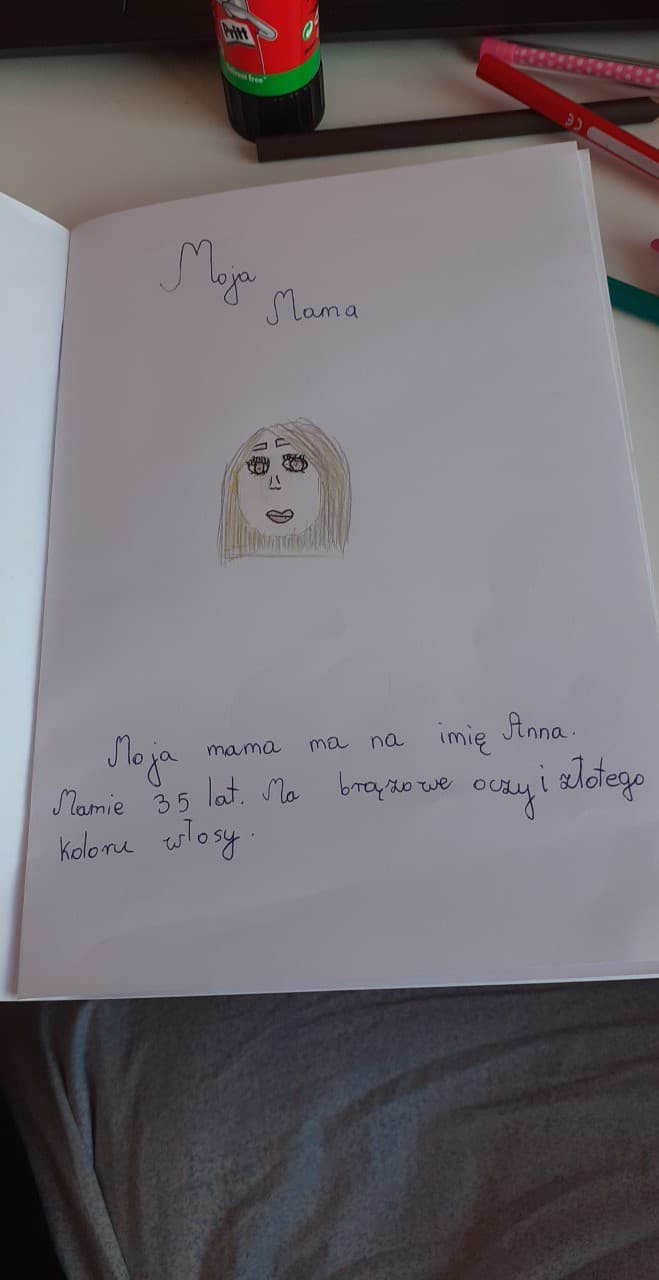 Pritt
Solvent free
CE
Moja
Mama
Moja mama ma na imię Anna.
Mamie 35 lat. Ma brązowe oczy i złotego
koloru włosy.